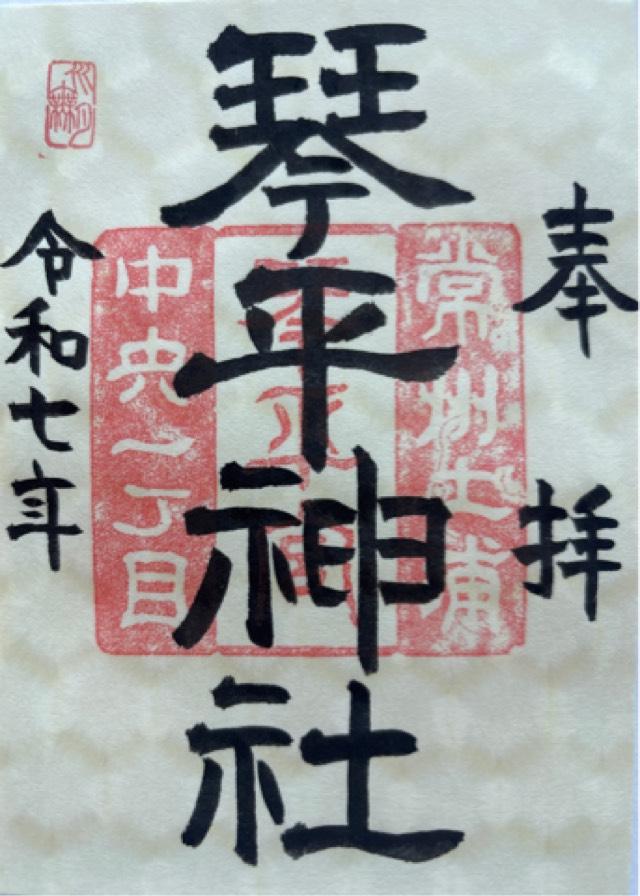 奉拝
琴平神社
令和七年
常州土浦
中央一丁目